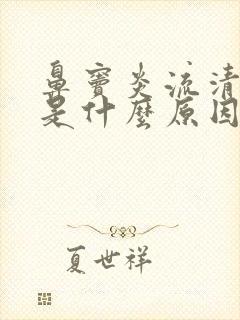 鼻竇炎流清
是什麼原因
夏世祥